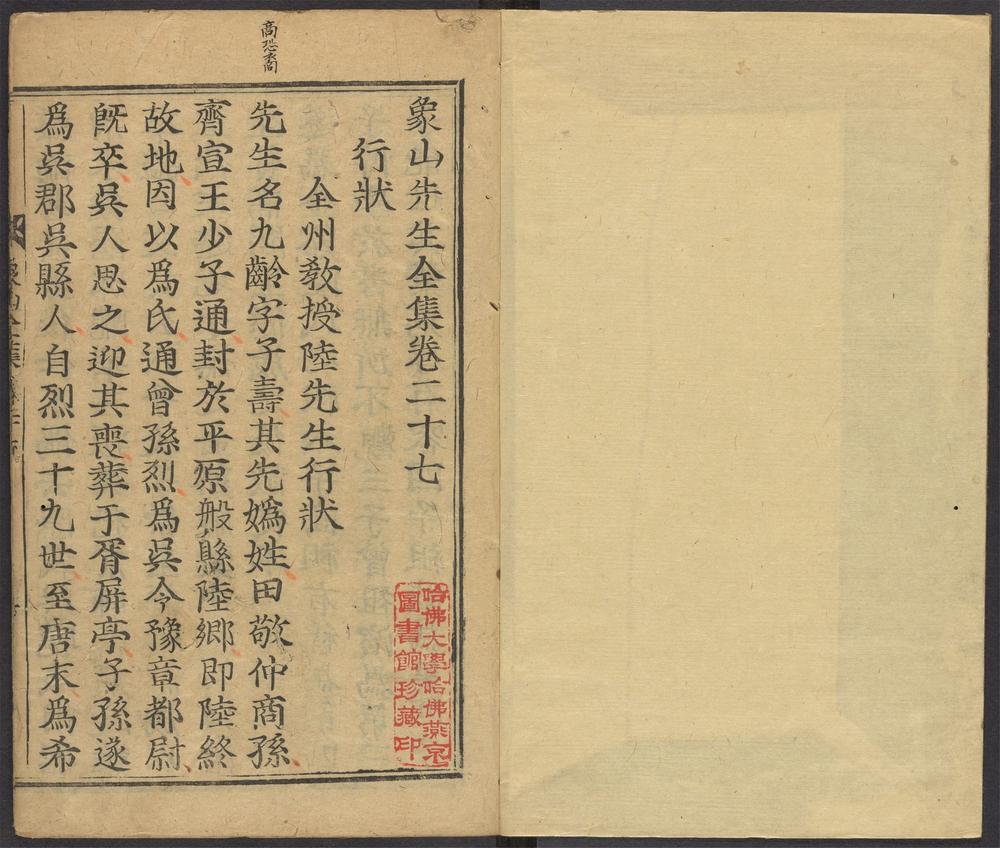 高恐裔
象山先生全集卷二十七
行狀
全州敎授陸先生行狀
先生名九齡字子壽其先嬀姓田敬仲商孫
齊宣王少子通封於平原般縣陸鄉即陸終
故地因以爲氏通曾孫烈爲吳令豫章都尉
旣卒吳人思之迎其喪葬于胥屏亭子孫遂
爲吳郡吳縣人自烈三十九世至唐末爲希
哈佛大學哈佛燕京
圖書館珍藏印